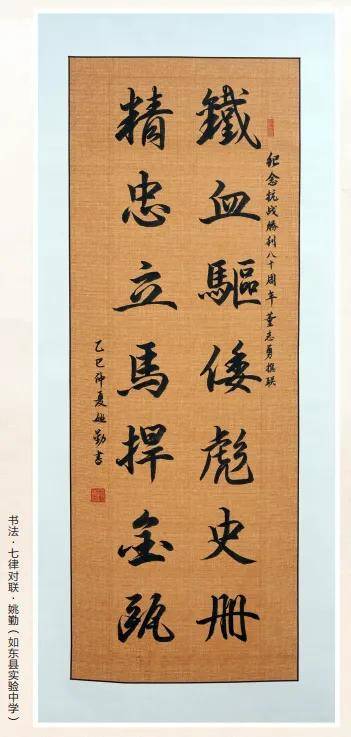 纪念抗战勝利八十周年 董志勇撰联
鐵血驅倭彪史册
精忠立馬捍金甌
乙巳仲夏姚勤書
书法·七律对联·姚勤（如东县实验中学）